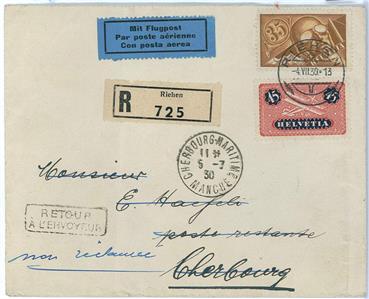 Mit Flugpost
Par poste aérienne
Con posta aerea
35
RIEHEN
-4.VII.30.-13
R
Riehen
725
45
HELVETIA
CHERBOURG-MARITIME
11 H
5 -7
30
MANCHE
E. Haefeli
RETOUR
À L'ENVOYEUR
poste restante
non réclamée
Cherbourg